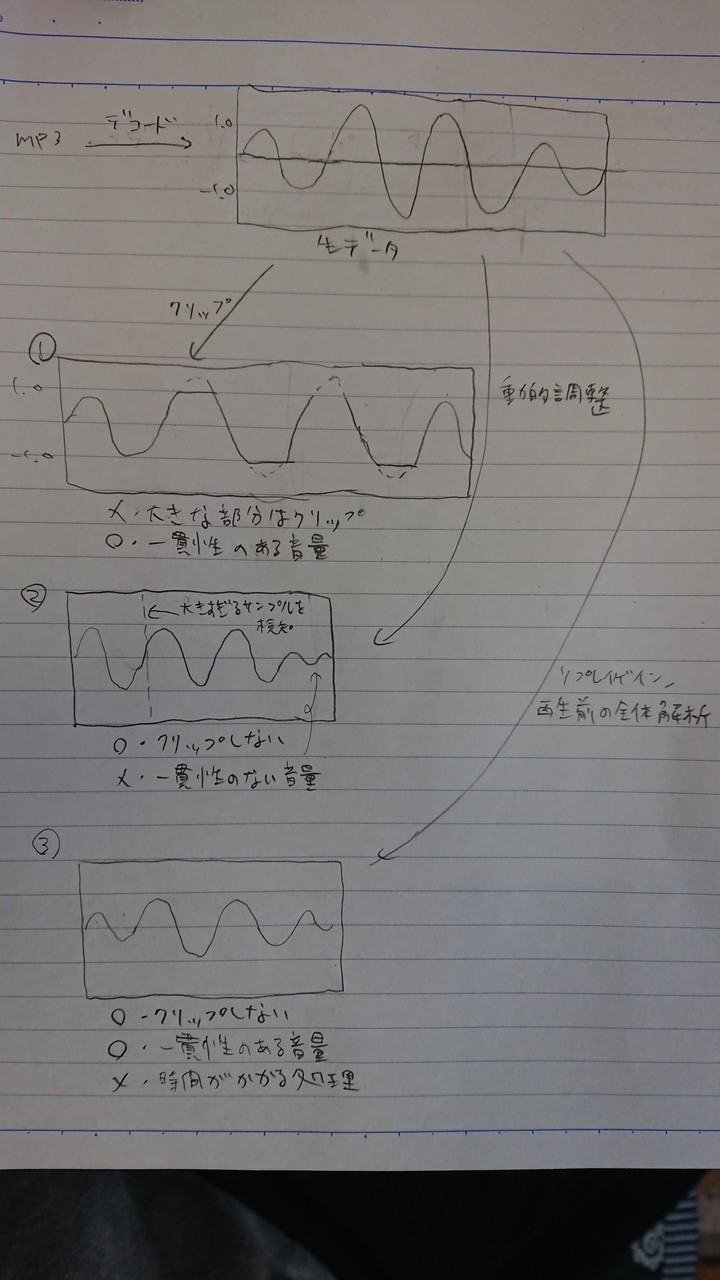 MP3
デコード
1.0
-1.0
生データ
クリップ
①
1.0
-1.0
動的調整
×・大きな部分はクリップ
○・一貫性のある音量
②
大きすぎるサンプルを
検知
○・クリップしない
×・一貫性のない音量
リプレイゲイン、
再生前の全体解析
③
○・クリップしない
○・一貫性のある音量
×・時間がかかる処理